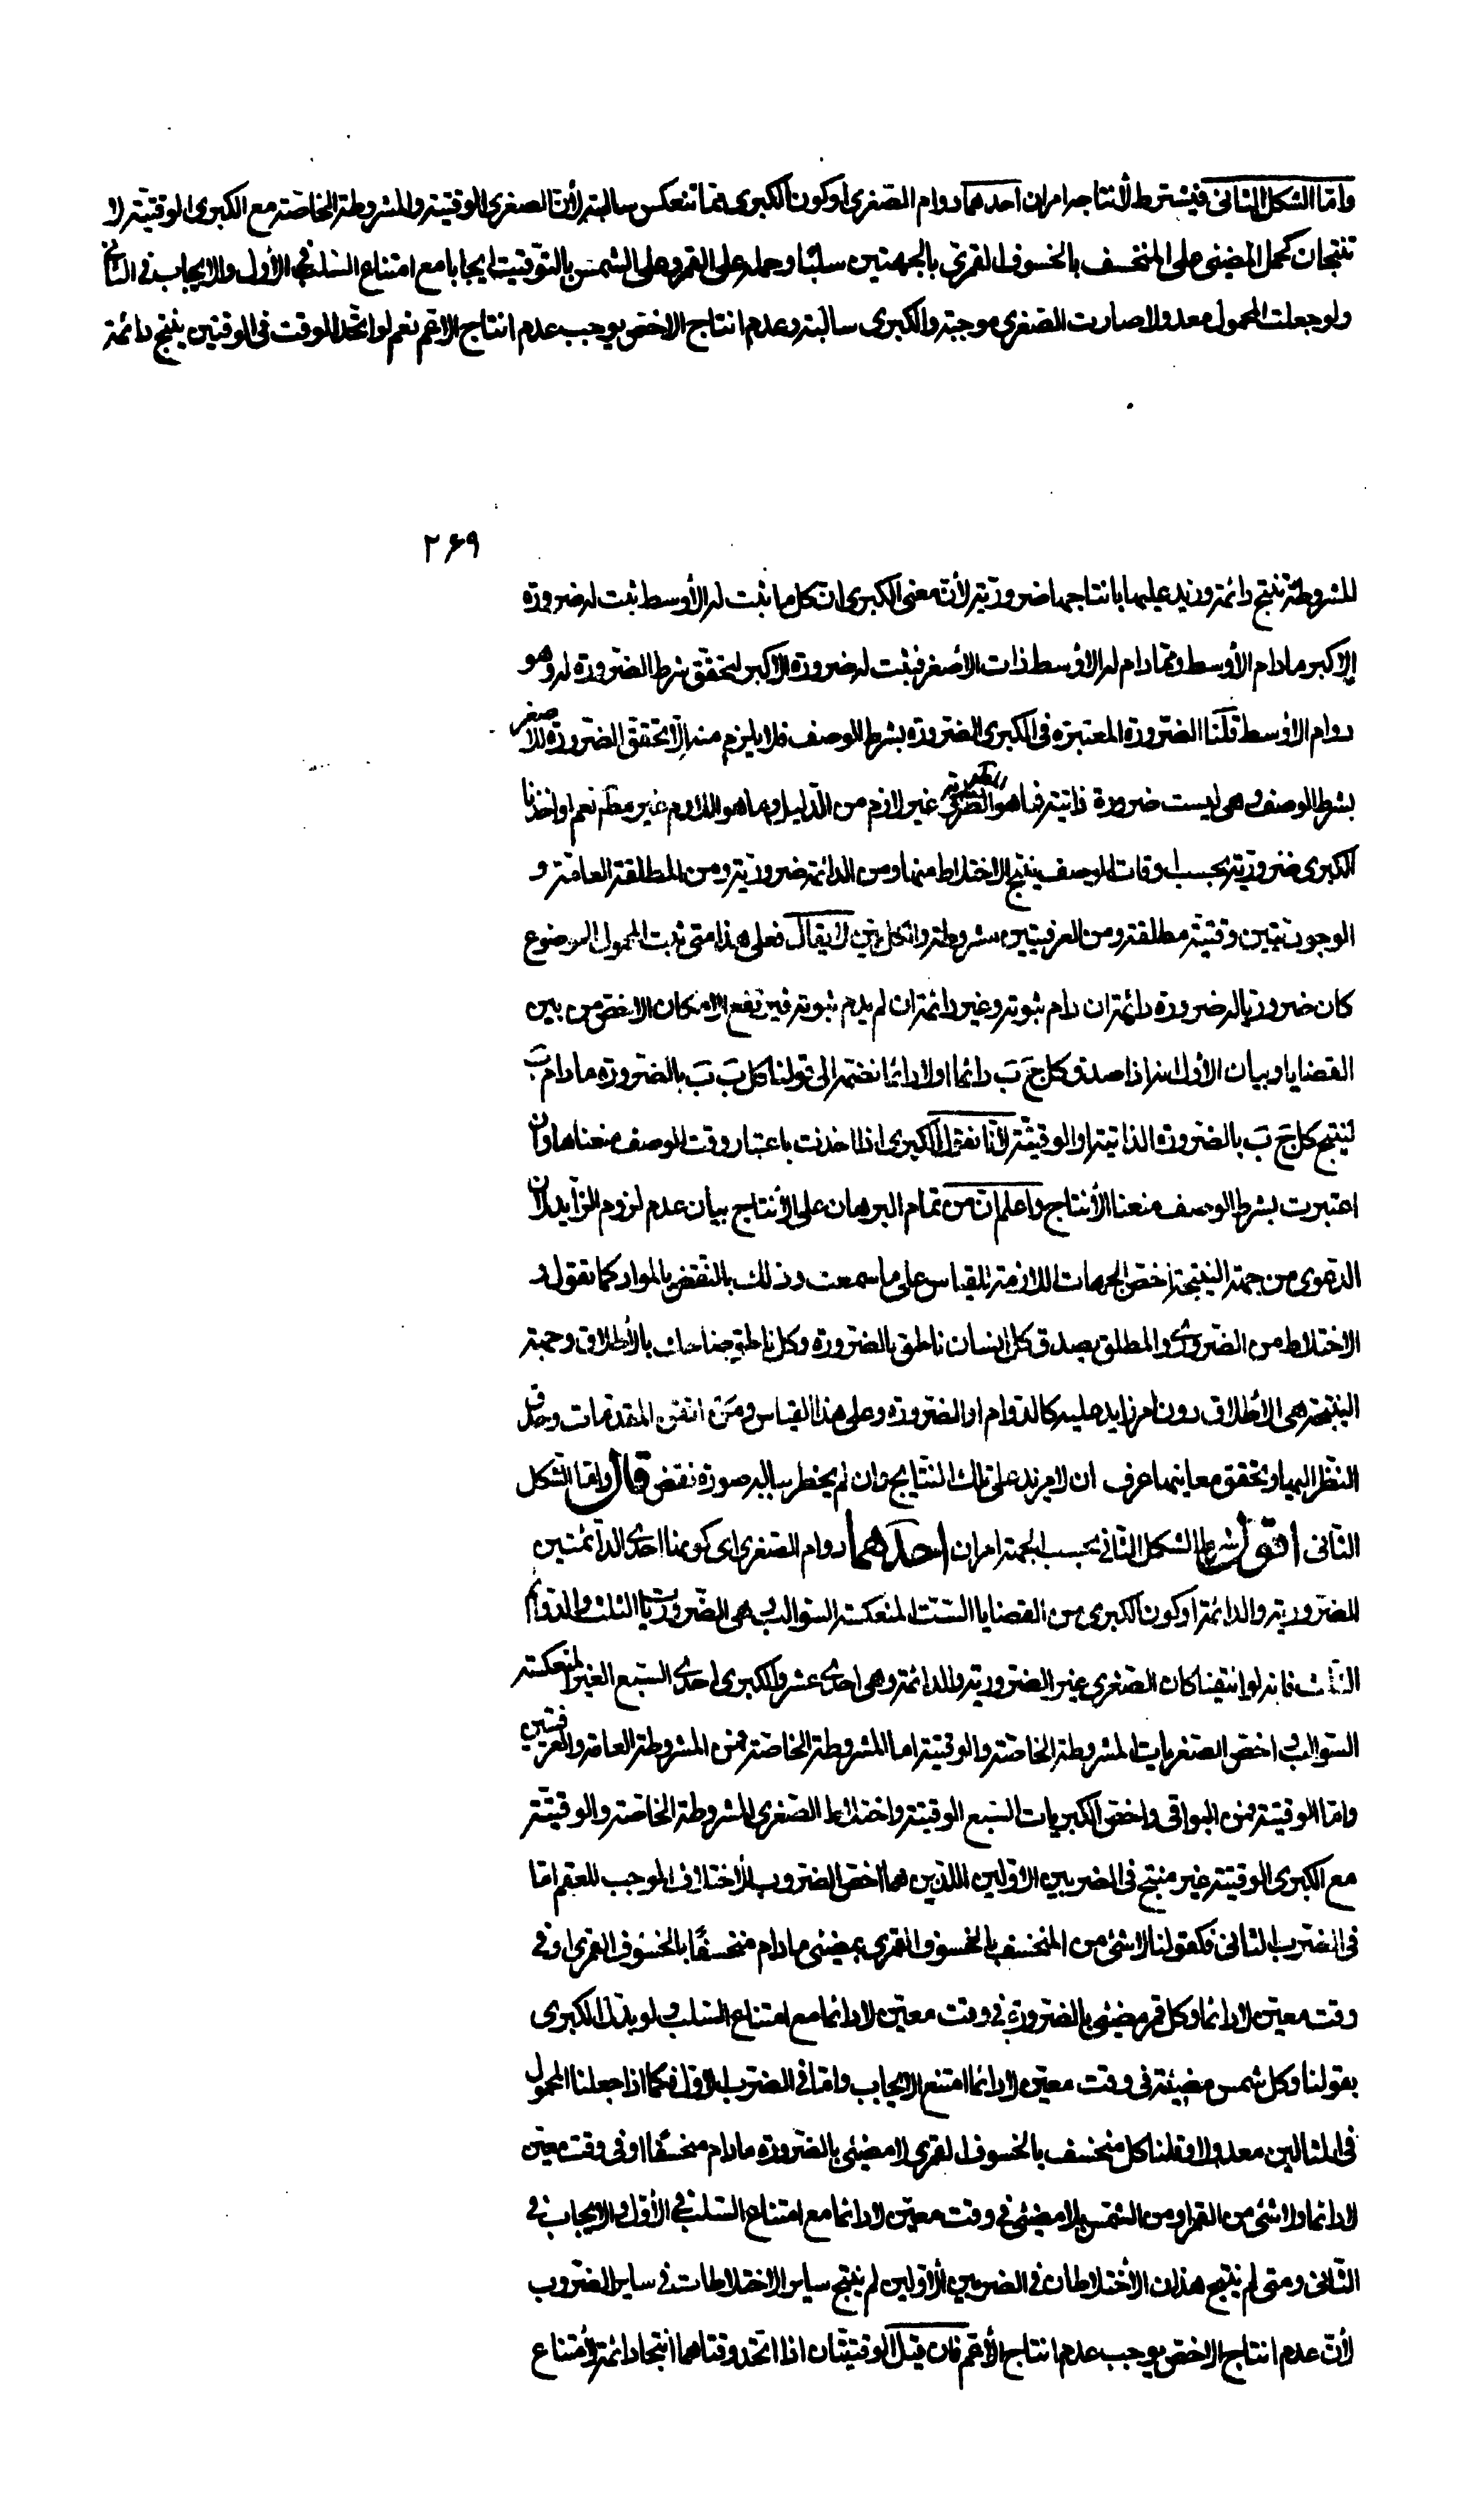 وامّا الشكل الثانى فيشترط لأنتاجه امران احدهما دوام الصّغرى او كون الكبرى ممّا تنعكس سالبته لأنّ الصغرى الوقتيّة والمشروطة الخاصّة مع الكبرى الوقتيّة لا
تنتجان كحمل المضيئى على المنخسف بالخسوف القمرى بالجهتين سلبًا وحمله على القمر وعلى الشمس بالتّوقيت ايجابا مع امتناع السّلب فى الأول والايجاب فى الثانى
ولو جعلت المحمول معدولا صارت الصّغرى موجبة والكبرى سالبة وعدم انتاج الاخصّ يوجب عدم انتاج الاعّم نعم لو اتّحد الوقت فى الوقتين ينتج دائمة
٢۶٩
المشروطة تنتج دائمة وزيد عليها بانتاجها ضروريّة لأنّ معنى الكبرى انّ كل ما ثبت له الأوسط ثبت له ضرورة
الاكبر مادام الأوسط وممّا دام له الاوسط ذات الاصغر فيثبت له ضرورة الاكبر لتحقّق شرط الضّرورة له وهو
دوام الاوسط قلنا الضّرورة المعتبرة فى الكبرى الضّرورة بشرط الوصف فلا يلزم منه الّا تحقّق الضّرورة للاصغر
بشرط الوصف وهى ليست ضرورة ذاتيّة فما هو المطلوب غير لازم من الدّليل وما هو اللازم غير مطّ نعم لو اخذنا
الكبرى ضروريّة بحسب اوقات الوصف ينتج الاختلاط منها ومن الدائمة ضروريّة ومن المطلقة العامّة و
الوجوديّتين وقتيّة مطلقة ومن العرفيّتين مشروطة والكل بيّن لا يقال فعلى هذا متى ثبت المحمول للموضوع
كان ضروريا له ضرورة دائمة ان دام ثبوته وغير دائمة ان لم يدم ثبوته فيرتفع الامكان الاخصّ من بين
القضايا وبيان الأول انه اذا صدق كل جَ بَ دائما او لا دائما نضمّه الى قولنا كل بَ بَ بالضّرورة مادام بَ
لينتج كل جَ بَ بالضّرورة الذاتية او الوقيتّة لأنّا نقول الكبرى اذا اخذت باعتبار وقت الوصف منعناها وان
اعتبرت بشرط الوصف منعنا الأنتاج واعلم انّ من تمام البرهان على الأنتاج بيان عدم لزوم الزّايد لان
الدّعوى من جهة النتيجة اخصّ الجهات اللازمة للقياس على ما سمعت وذلك بالنّقض بالمواد كما نقول فى
الاختلاط من الضّرورى والمطلق يصدق كل انسان ناطق بالضّرورة وكل ناطق ضاحك بالأطلاق وجهة
النتيجة هى الأطلاق دون امر زايد عليه كالدّوام او الضّرورة وعلى هذا القياس ومَن اتقن المقدّمات وحدّق
النّظر اليها وتحقّق معاينها عرف ان لا مزيد على تلك النتايج وان لم يخطر بباله صورة نقض قال وامّا الشكل
الثّانى اقول شرط الشكل الثّانى بحسب الجهة امران احدهما دوام الصّغرى اى كونها احدى الدائمتين
الضّروريّة والدائمة او كون الكبرى من القضايا السّت المنعكسة السّوالب وهى الضّروريّات الثلث والدّوام
الثّلث فانه لو انتفيا كان الصّغرى غير الضّروريّة والدائمة وهى احدى عشر والكبرى احدى السّبع الغير المنعكسة
السّوالب واخصّ الصّغريات المشروطة الخاصّة والوقتيّة اما المشروطة الخاصّة فمن المشروطة العامّة والعرفيّتين
وامّا الوقتيّة فمن البواقى واخصّ الكبريات السّبع الوقتيّة واختلاط الصّغرى المشروطة الخاصّة والوقيتّة
مع الكبرى الوقيتّة غير منتج فى الضربين الاوّلين اللذين هما اخصّ الضّروب للأختلاف الموجب للعقم امّا
فى الضّرب الثانى فكقولنا لا شئ من المنخسف بالخسوف القمرى بمضيئى مادام منخسفًا بالخسوف القمرى او فى
وقت معيّن لا دائما وكل قمر مضيئى بالضّرورة فى وقت معيّن لا دائما مع امتناع السّلب ولو بدّلنا الكبرى
بقولنا وكل شمس مضيئة فى وقت معيّن لا دائما امتنع الايجاب وامّا فى الضّرب الاوّل فكما اذا جعلنا المحمول
فى المثالين معدولا وقلنا كل منخسف بالخسوف القمرى لا مضيئى بالضّرورة مادام منخسفًا او فى وقت معيّن
لا دائما ولا شئ من القمر او من الشّمس بلا مضيئى فى وقت معيّن لا دائما مع امتناع السّلب فى الأوّل والايجاب فى
الثّانى ومتى لم ينتج هذان الأختلاطان فى الضربين الأوّلين لم ينتج ساير الاختلاطات فى ساير الضّروب
لأنّ عدم انتاج الاخصّ يوجب عدم انتاج الأعّم فان قيل الوقتيّتان اذا اتّحد وقتاهما انتجا دائمة لأمتناع